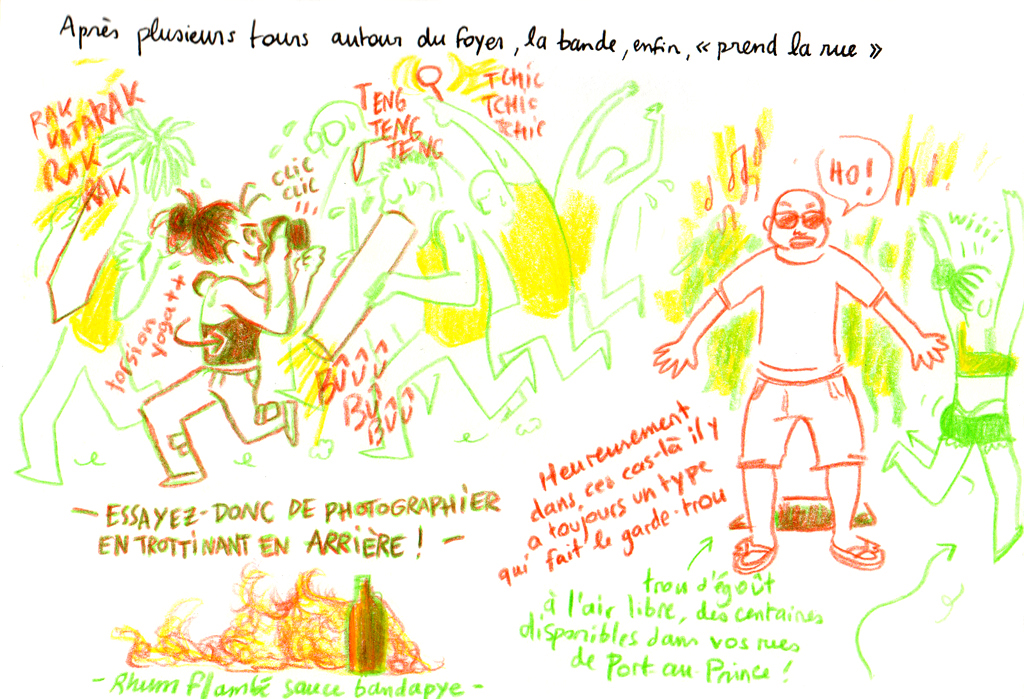 Après plusieurs tours autour du foyer, la bande, enfin, « prend la rue »
RAK
KATARAK
RAK
RAK
CLIC
CLIC
!!!
TENG
TENG
TENG
TCHIC
TCHIC
TCHIC
HO!
wiiii
torsion
yoga++
BÛÛÛ
BÛ
BÛÛ
Heureusement
dans ces cas-là il y
a toujours un type
qui fait le garde-trou
- ESSAYEZ-DONC DE PHOTOGRAPHIER
EN TROTTINANT EN ARRIÈRE ! -
trou d'égoût
à l'air libre, des centaines
disponibles dans vos rues
de Port au Prince !
- Rhum flambé sauce bandapye -